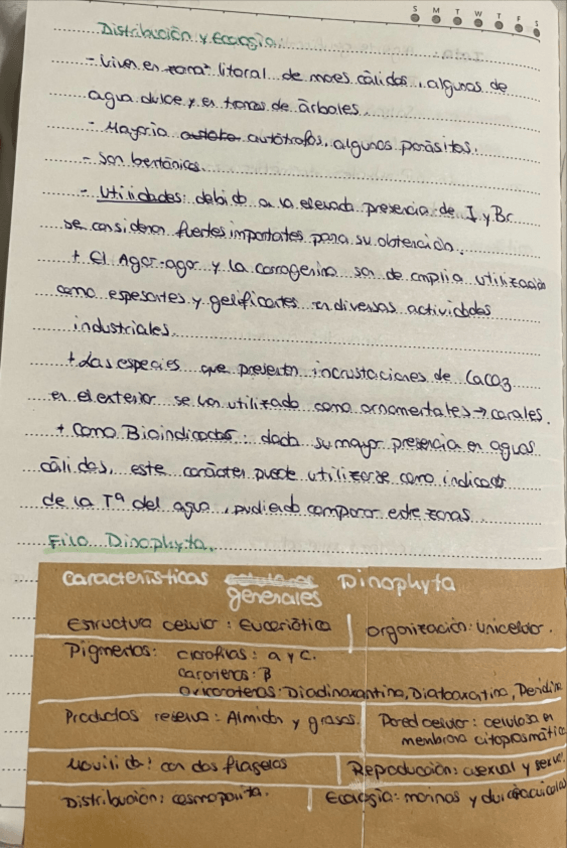 S M T W T F S
Distribución y Ecología.
- Viven en zona litoral de mares cálidos, algunas de
agua dulce y en troncos de árboles.
- Mayoría autótrofos, algunos parásitos.
- Son bentónicos.
- Utilidades: debido a la elevada presencia de I y Br
se consideran fuertes importantes para su obtención.
+ El Agar-agar y la carragenina son de amplia utilización
como espesantes y gelificantes en diversas actividades
industriales.
+ Las especies que presentan incrustaciones de CaCO3
en el exterior se han utilizado como ornamentales → corales.
+ Como Bioindicador: dada su mayor presencia en aguas
cálidas, este carácter puede utilizarse como indicador
de la Tª del agua, pudiendo comparar entre zonas.
Filo Dinophyta.
Características generales Dinophyta
Estructura celular: Eucariótica | Organización: unicelular.
Pigmentos: clorofilas: a y c.
carotenos: B
Diadinoxantina, Diatoxantina, Peridina
Productos reserva: Almidón y grasas. Pared celular: celulosa en
membrana citoplasmática
Movilidad: con dos flagelos Reproducción: asexual y sexual.
Distribución: cosmopolita. Ecología: marinas y